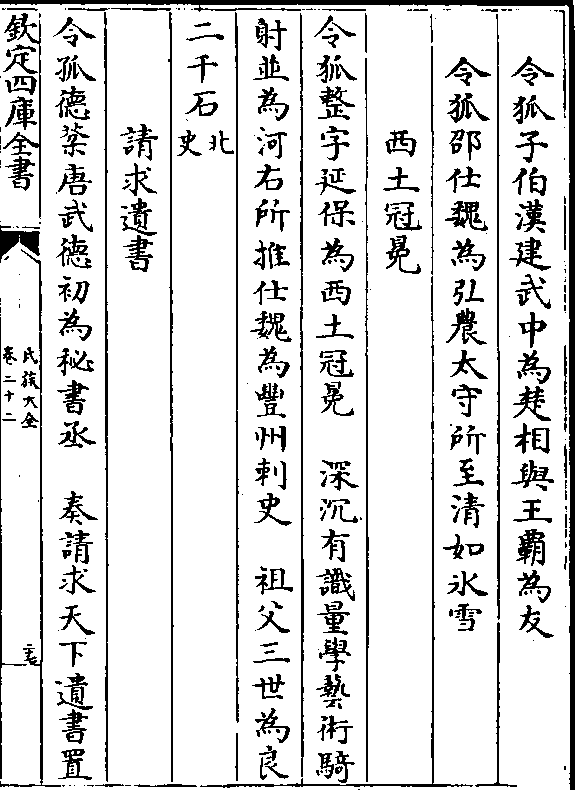 令狐子伯漢建武中為楚相與王霸為友
令狐邵仕魏為弘農太守所至清如氷雪
西土冠冕
令狐整字延保為西土冠冕　深沉有識量學藝術騎
射並為河右所推仕魏為豐州刺史　祖父三世為良
二千石北史
請求遺書
令狐德棻唐武德初為秘書丞　奏請求天下遺書置
欽定四庫全書
氏族大全
卷二十二